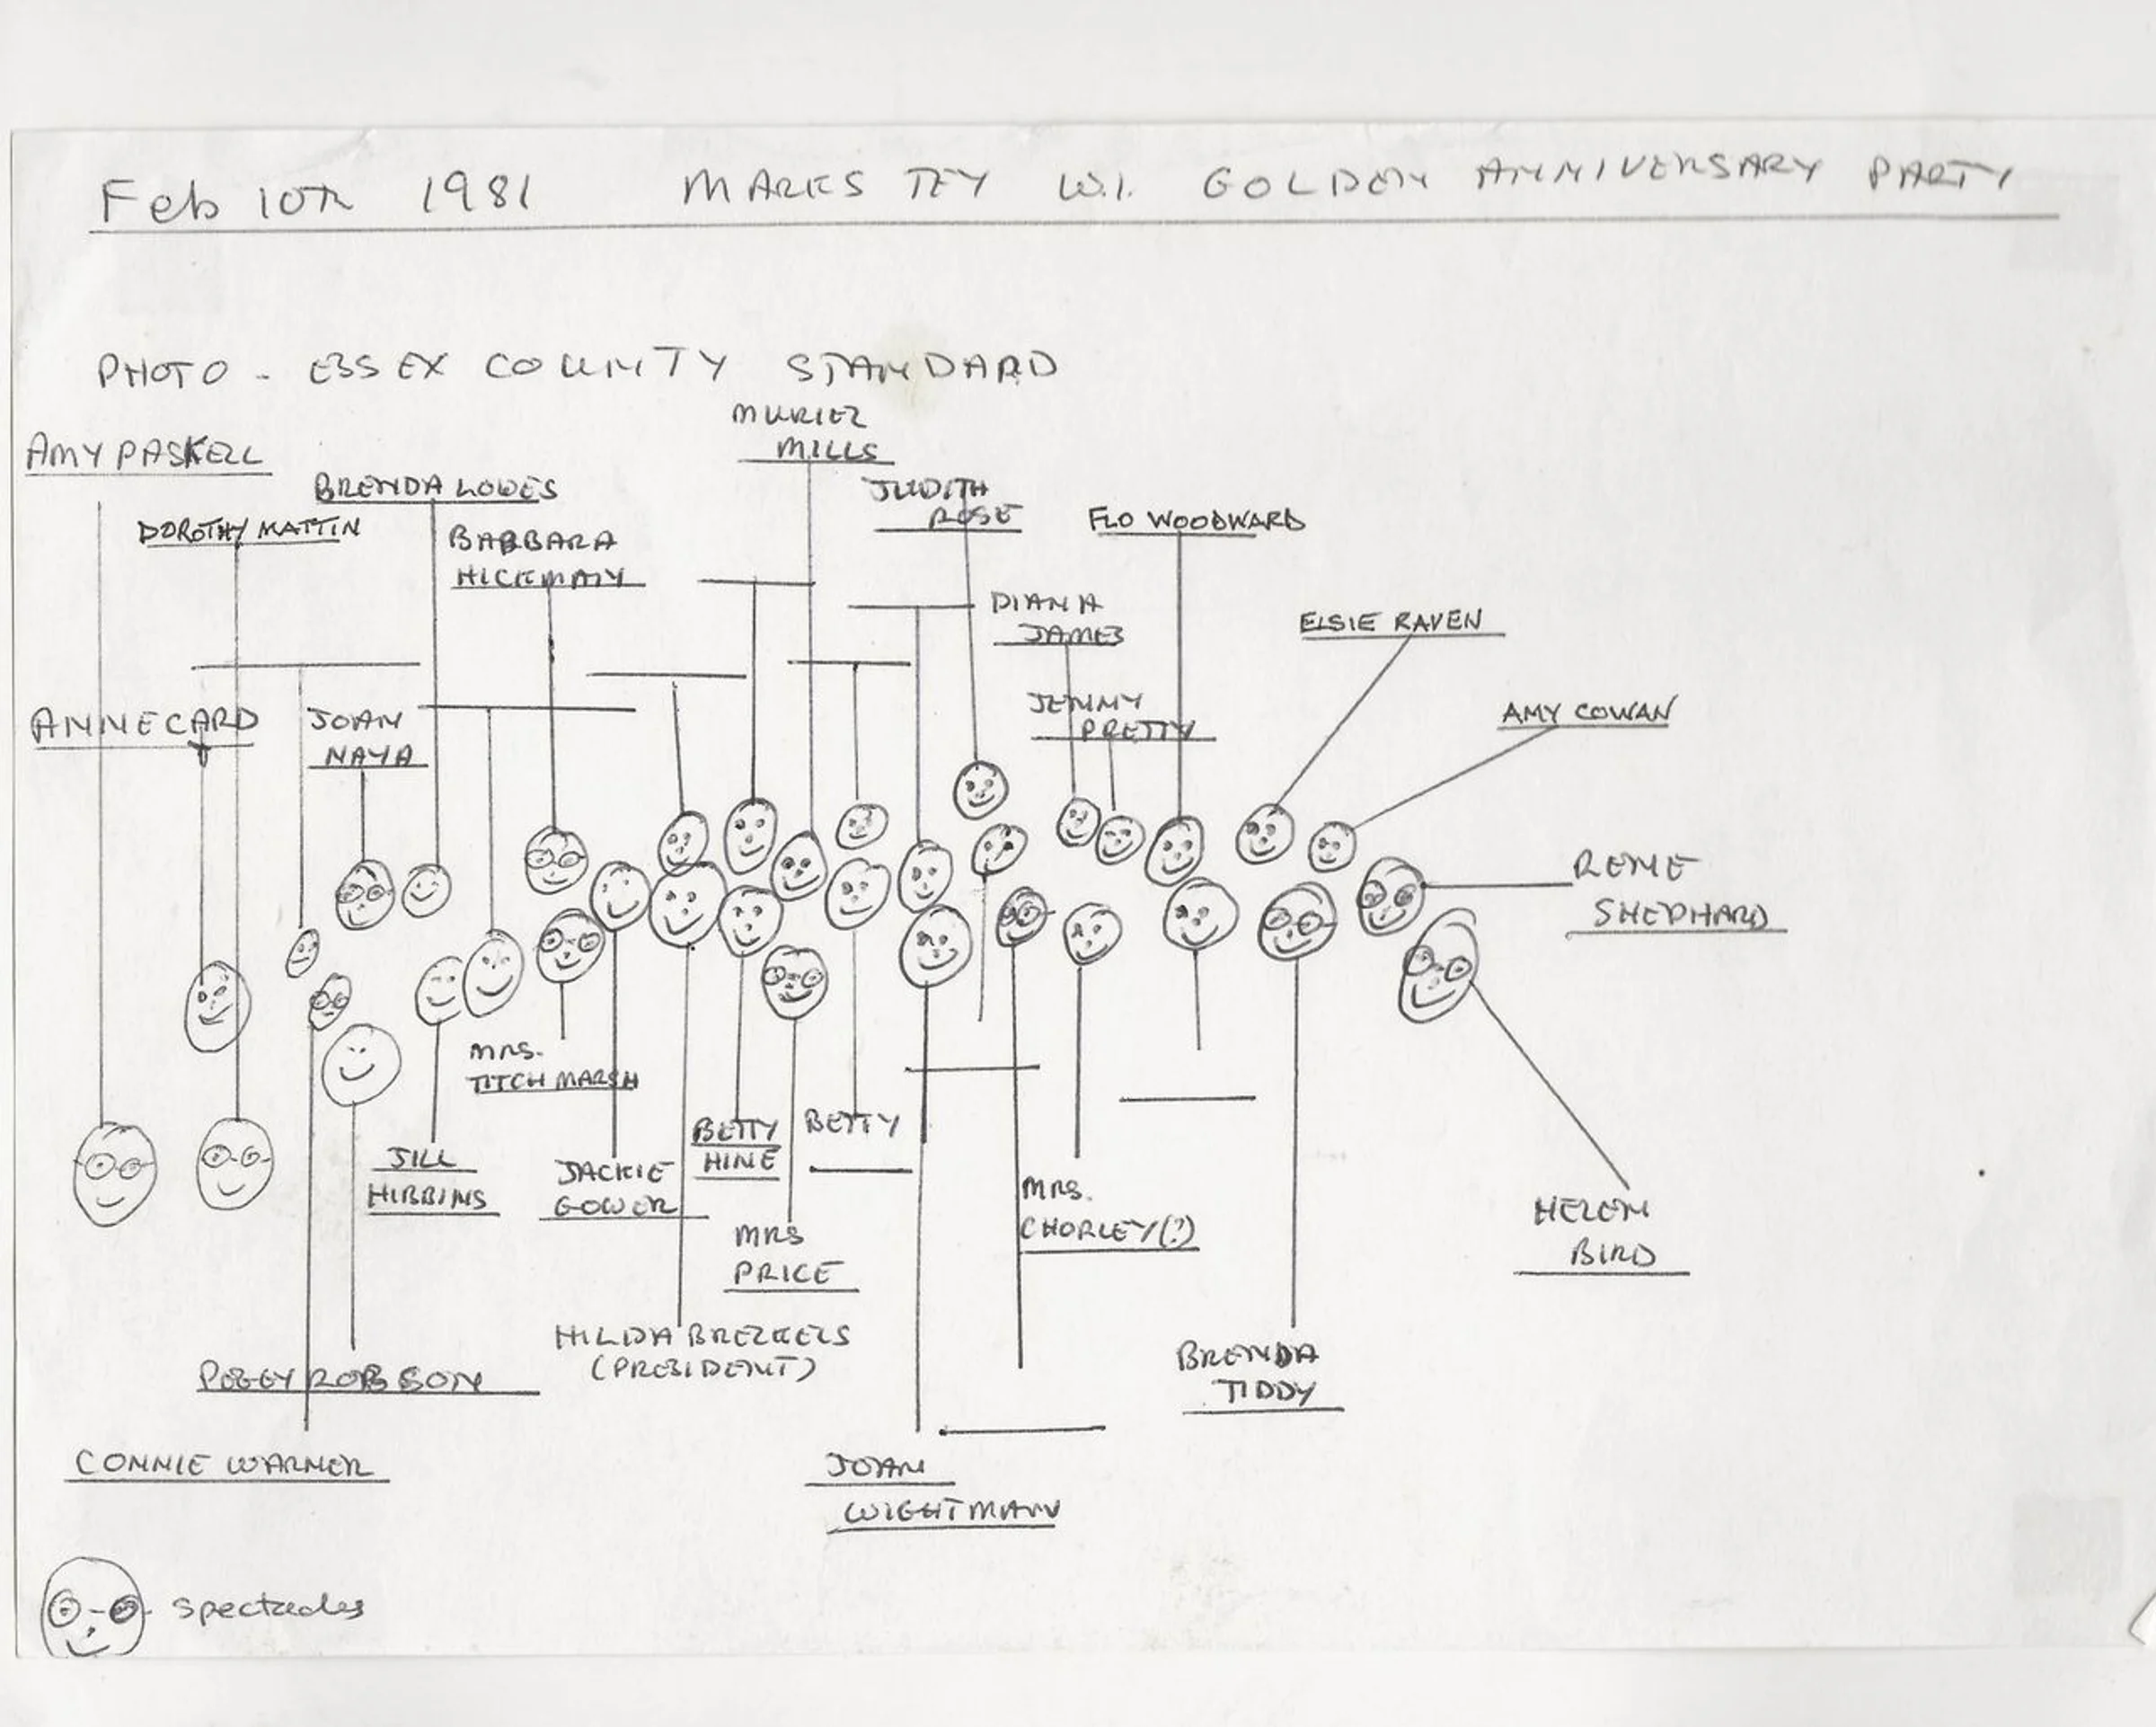 Feb 10th 1981 MARKS TEY W.I. GOLDEN ANNIVERSARY PARTY
PHOTO - ESSEX COUNTY STANDARD
MURIEL
MILLS
AMY PASKELL
BRENDA LOWES
JUDITH
ROSE
DOROTHY MATTIN
FLO WOODWARD
BARBARA
HICKMAN
DIANA
JAMES
ELSIE RAVEN
ANNE CARD
JOAN
NAYA
JENNY
PRETTY
AMY COWAN
RENE
SHEPHARD
MRS.
TITCHMARSH
BETTY
HINE
BETTY
JILL
HIBBINS
JACKIE
GOWER
MRS.
CHORLEY(?)
HELEN
BIRD
MRS
PRICE
HILDA
(PRESIDENT)
BRENDA
TIDDY
PEGGY ROBSON
CONNIE WARNER
JOAN
WIGHTMAN
spectacles